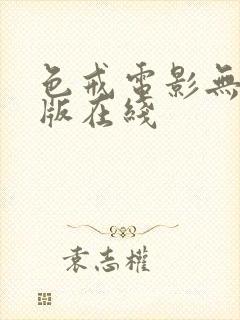 色戒電影無
版在綫
袁志權